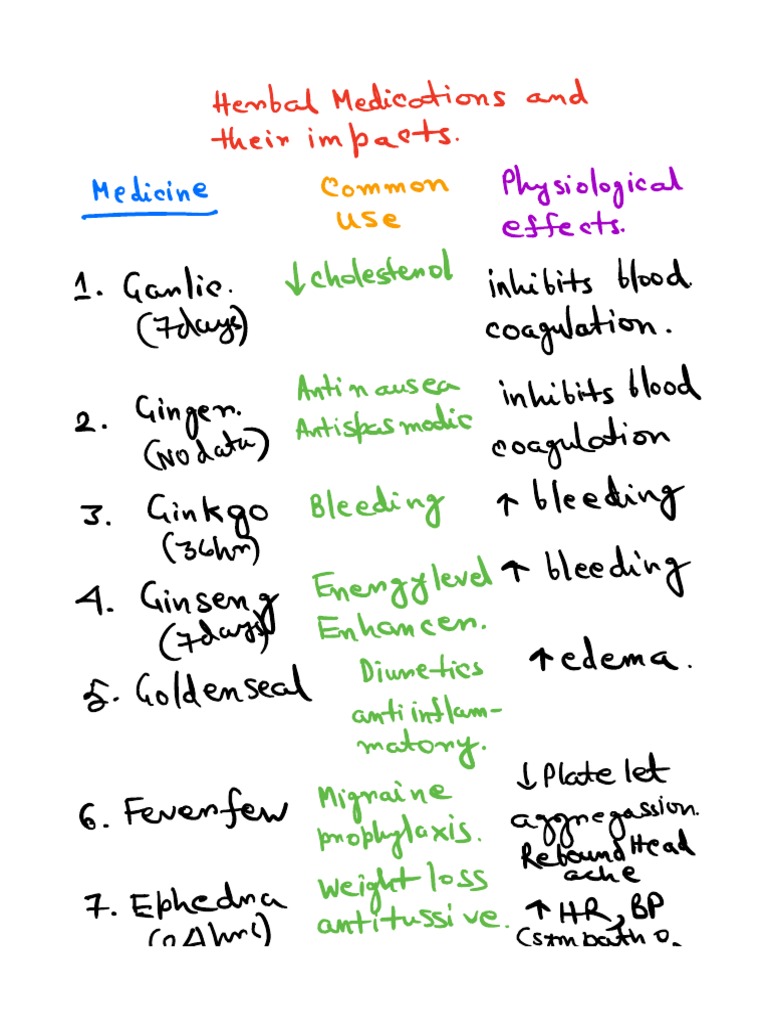 Herbal Medications and
their impacts.
Medicine Common Physiological
use effects.
1. Garlic. ↓cholesterol inhibits blood
(7days) coagulation.
2. Ginger. Antinausea inhibits blood
(No data) Antispasmodic coagulation
3. Ginkgo Bleeding ↑ bleeding
(36hr)
4. Ginseng Energy level ↑ bleeding
(7days) Enhancer.
5. Goldenseal Diuretics ↑ edema.
anti inflam-
matory.
6. Feverfew Migraine ↓ Platelet
prophylaxis. aggregassion.
Rebound Head
ache
7. Ephedra Weight loss ↑ HR, BP
(24hrs) antitussive.